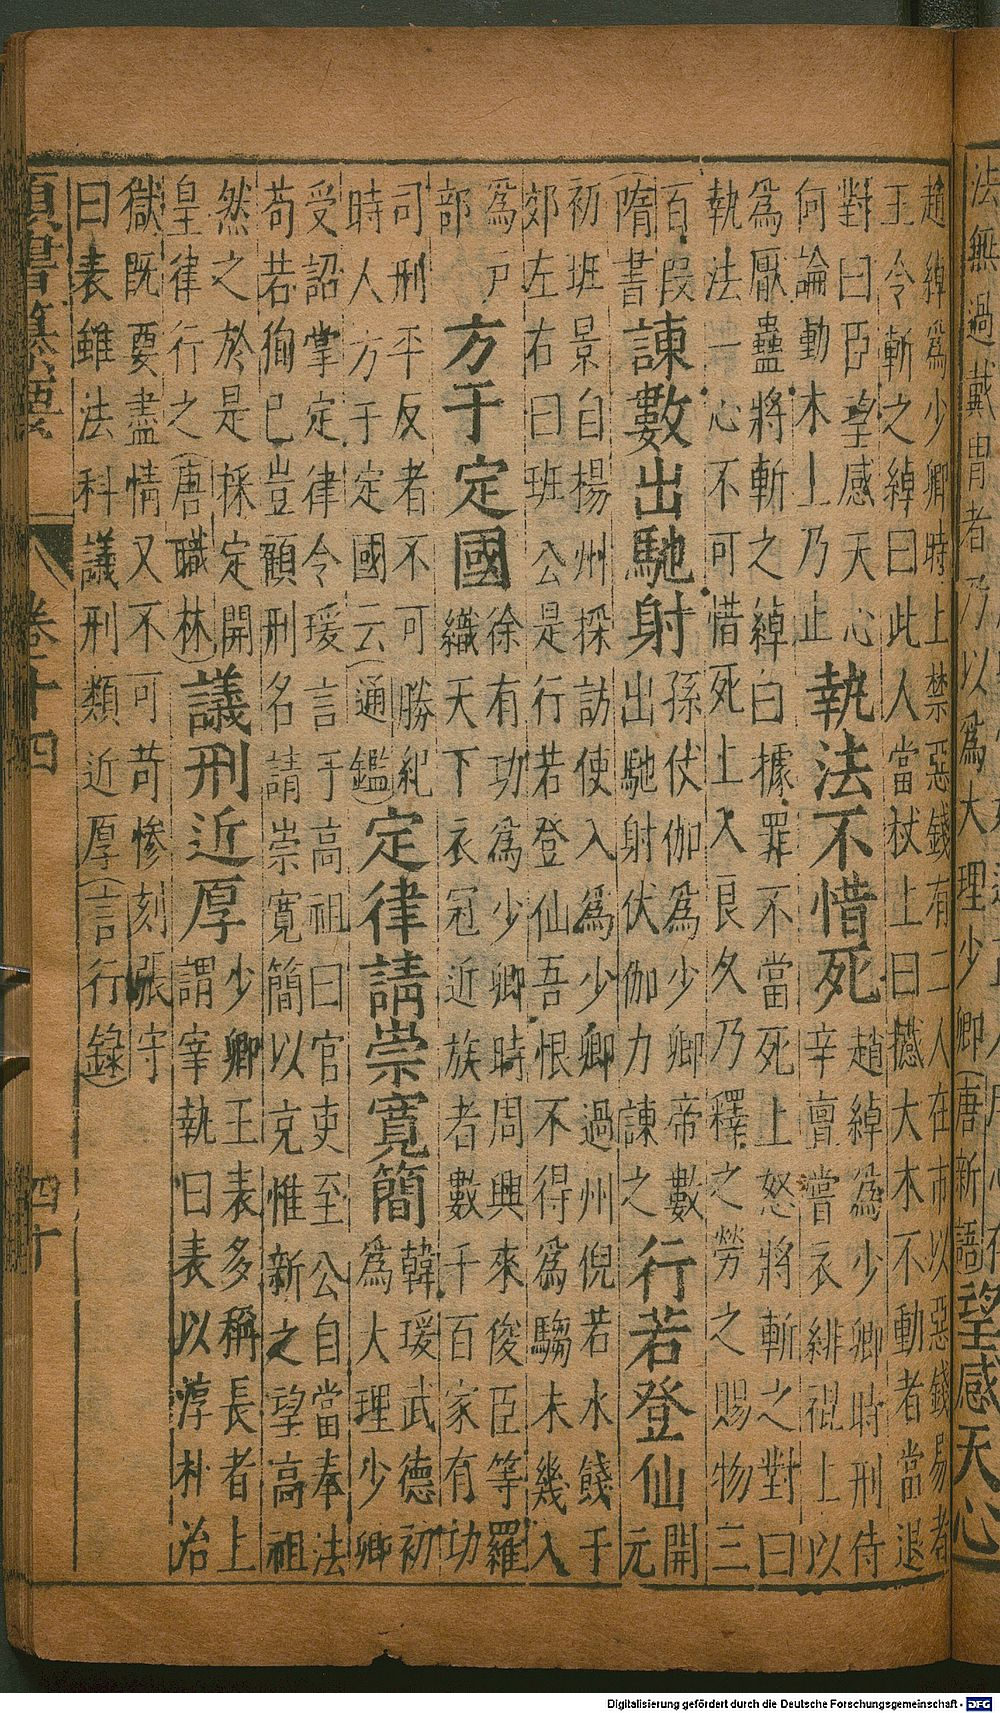 法無過戴胄者乃以為大理少卿(唐新語)望感天心
趙綽為少卿時上禁惡錢有二人在市以惡錢易者
王令斬之綽曰此人當杖上曰撼大木不動者當退
對曰臣望感天心
何論動木上乃止
執法不惜死
趙綽為少卿時刑侍
辛亶嘗衣緋裩上以
為厭蠱將斬之綽曰據罪不當死上怒將斬之對曰
執法一心不可惜死上入良久乃釋之勞之賜物三
百段
(隋書
諫數出馳射
孫伏伽為少卿帝數
出馳射伏伽力諫之
行若登仙
開
元
初班景自楊州採訪使入為少卿過州倪若水餞于
郊左右曰班公是行若登仙吾恨不得為騶未幾入
為戶
部
方于定國
徐有功為少卿時周興來俊臣等羅
織天下衣冠近族者數千百家有功
司刑平反者不可勝紀
時人方于定國云(通鑑)
定律請崇寬簡
韓瑗武德初
為大理少卿
受詔掌定律令瑗言于高祖曰官吏至公自當奉法
苟若徇已豈顧刑名請崇寬簡以允惟新之望高祖
然之於是採定開
皇律行之(唐職林)
議刑近厚
少卿王表多稱長者上
謂宰執曰表以淳朴治
獄既要盡情又不可苛慘刻張守
曰表雖法科議刑類近厚(言行錄)
類書纂要 卷十四 四十
Digitalisierung gefördert durch die Deutsche Forschungsgemeinschaft - DFG